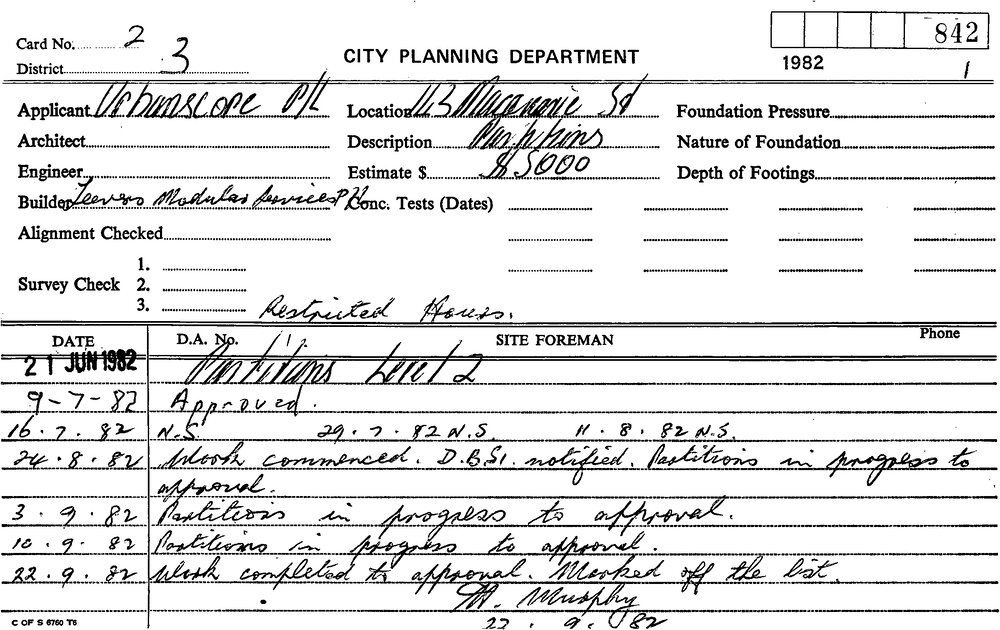 Card No. 2
District 3
CITY PLANNING DEPARTMENT
842
1982
1
Applicant Urbanscope P/L
Location 113 Macquarie St
Foundation Pressure
Architect
Description Partitions
Nature of Foundation
Engineer
Estimate $ $5000
Depth of Footings
Builder Modular Services P/L
Conc. Tests (Dates)
Alignment Checked
Survey Check
1.
2.
3.
Restricted Hours.
DATE
D.A. No.
SITE FOREMAN
Phone
21 JUN 1982
Partitions Level 2
9-7-82 Approved.
16.7.82 N.S. 29.7.82 N.S. 11.8.82 N.S.
24.8.82 Work commenced. D.B.S. notified. Partitions in progress to
approval.
3.9.82 Partitions in progress to approval.
10.9.82 Partitions in progress to approval.
22.9.82 Work completed to approval. Marked off the list.
Murphy
22.9.82
C OF S 6760 T6